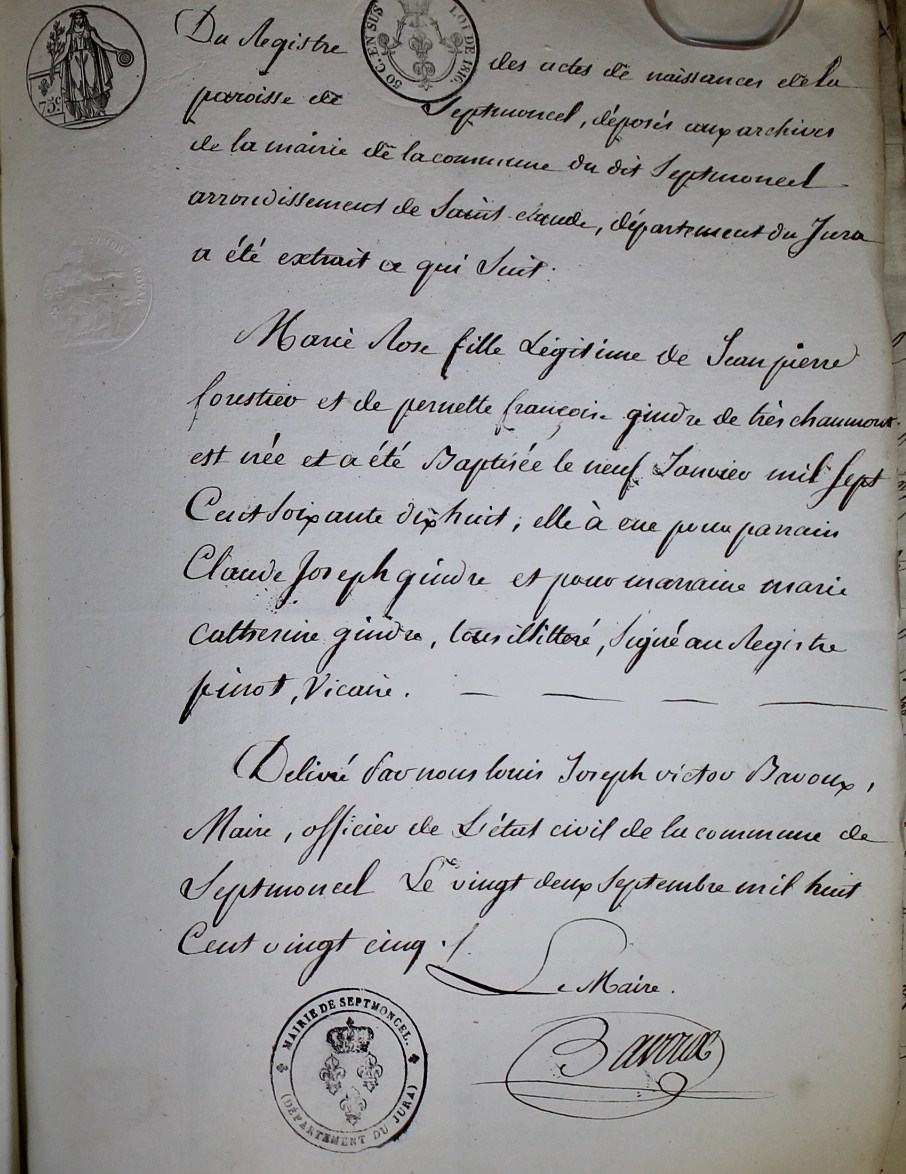 75c.
50 C. EN SUS
LOI DE 1816.
Du Registre des actes de naissances de la
paroisse de Septmoncel, déposés aux archives
de la mairie de la commune du dit Septmoncel
arrondissement de Saint-claude, département du Jura
a été extrait ce qui Suit.
Marie Rose fille Légitime de Jean pierre
forestier et de pernette françoise gindre de très chaumont
est née et a été Baptisée le neuf Janvier mil Sept
Cent Soixante dix huit, elle à eue pour parrain
Claude Joseph gindre et pour marraine marie
catherine gindre, tous illitéré, Signé au Registre
pinot, Vicaire.
Délivré Par nous louis Joseph victor Bavoux,
Maire, officier de L'état civil de la commune de
Septmoncel Le vingt deux Septembre mil huit
Cent vingt cinq ./.
Le Maire.
Bavoux
MAIRIE DE SEPTMONCEL.
(DÉPARTEMENT DU JURA)